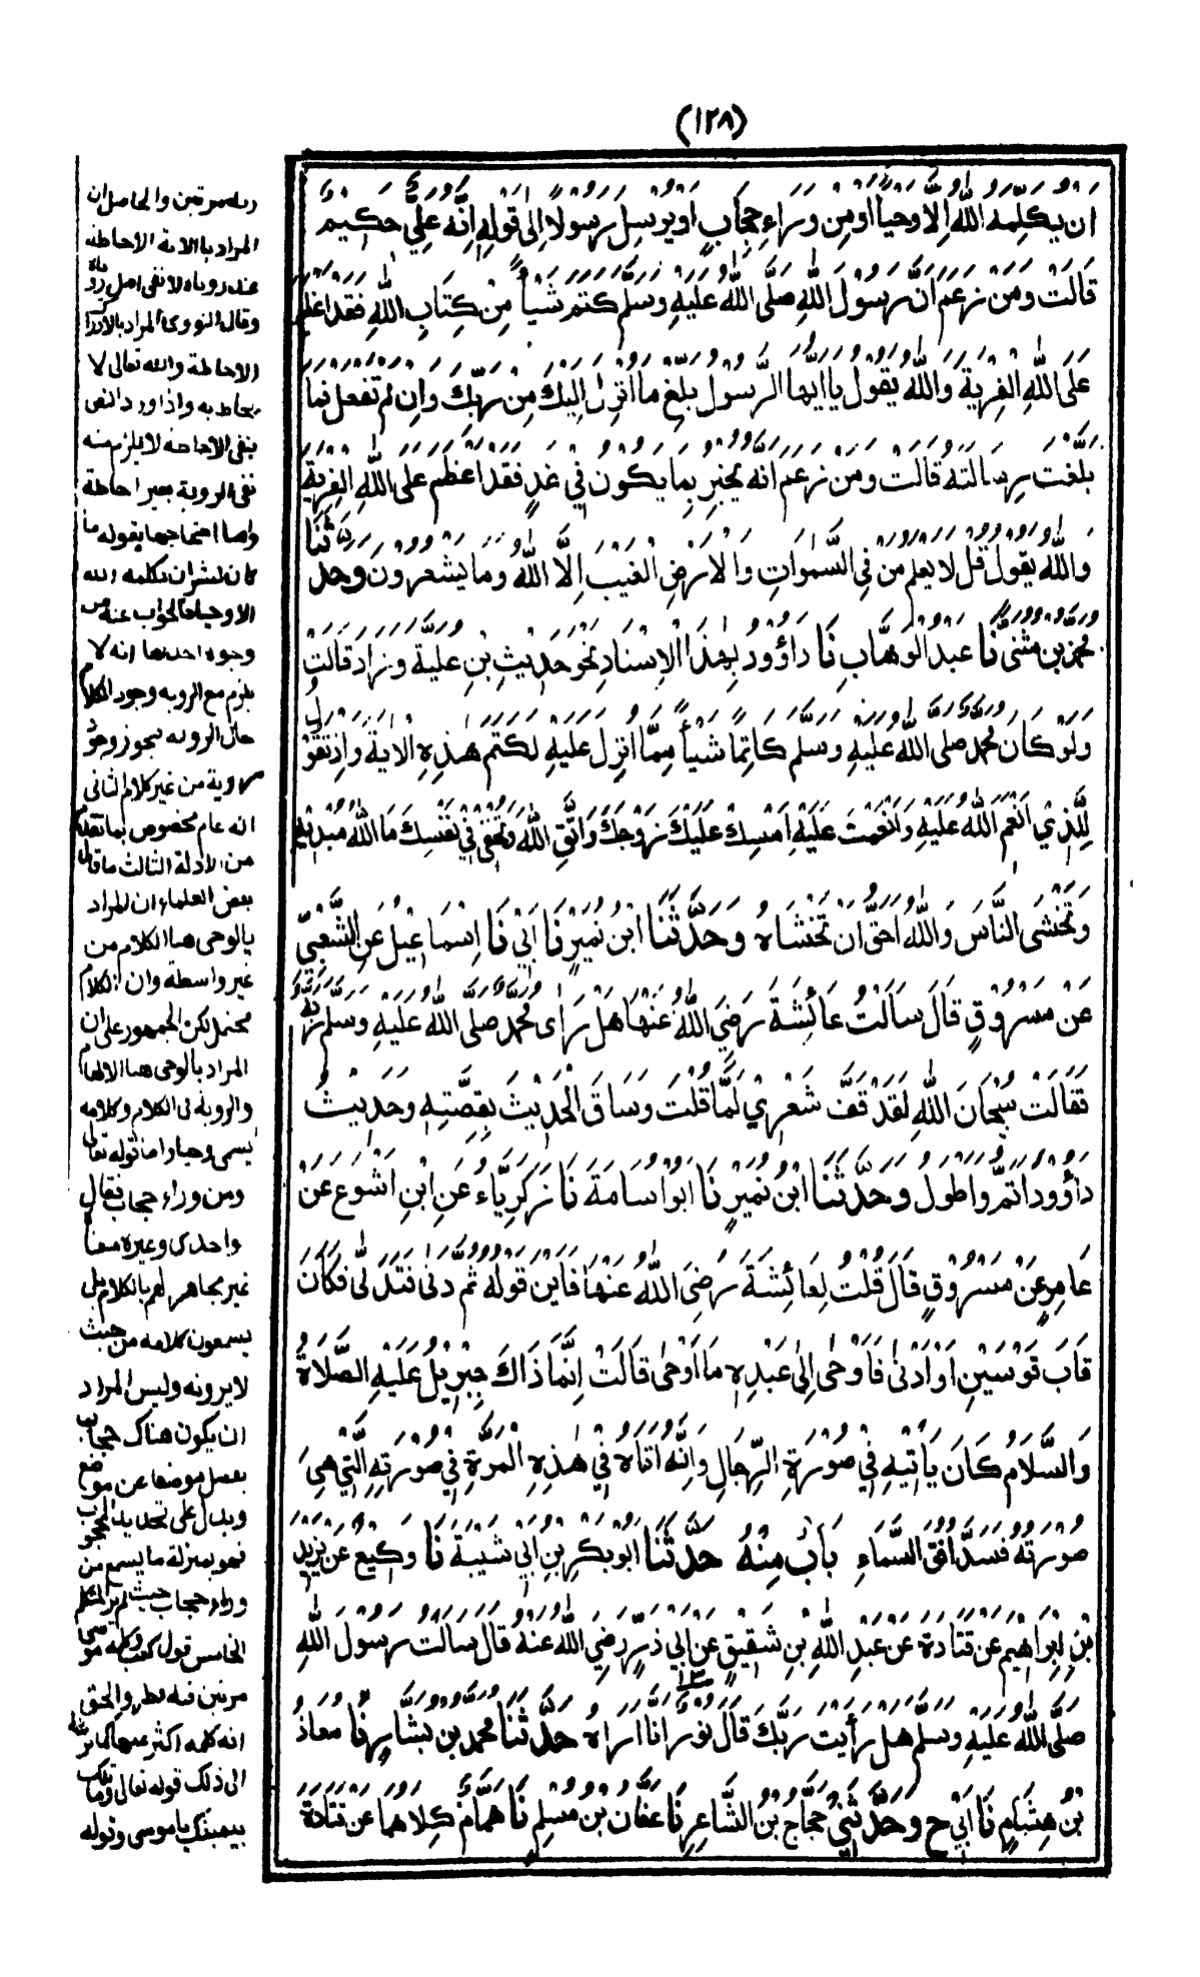 (١٢٨)
اَنْ يُكَلِّمَهُ اللهُ اِلَّا وَحْيًا اَوْ مِنْ وَرَاءِ حِجَابٍ اَوْ يُرْسِلَ رَسُوْلًا اِلٰى قَوْلِهٖ اِنَّهُ عَلِيٌّ حَكِيْمٌ
قَالَتْ وَمَنْ زَعَمَ اَنَّ رَسُوْلَ اللهِ صَلَّى اللهُ عَلَيْهِ وَسَلَّمَ كَتَمَ شَيْأً مِنْ كِتَابِ اللهِ فَقَدْ اَعْظَمَ
عَلَى اللهِ الْفِرْيَةَ وَاللهُ يَقُوْلُ يَا اَيُّهَا الرَّسُوْلُ بَلِّغْ مَا اُنْزِلَ اِلَيْكَ مِنْ رَبِّكَ وَاِنْ لَمْ تَفْعَلْ فَمَا
بَلَّغْتَ رِسَالَتَهُ قَالَتْ وَمَنْ زَعَمَ اَنَّهُ يُخْبِرُ بِمَا يَكُوْنُ فِيْ غَدٍ فَقَدْ اَعْظَمَ عَلَى اللهِ الْفِرْيَةَ
وَاللهُ يَقُوْلُ قُلْ لَا يَعْلَمُ مَنْ فِي السَّمٰوَاتِ وَالْاَرْضِ الْغَيْبَ اِلَّا اللهُ وَمَا يَشْعُرُوْنَ وَحَدَّثَنَا
مُحَمَّدُ بْنُ مُثَنّٰى نَا عَبْدُ الْوَهَّابِ نَا دَاؤُوْدُ بِهٰذَا الْاِسْنَادِ نَحْوَ حَدِيْثِ بْنِ عُلَيَّةَ وَزَادَ قَالَتْ
وَلَوْ كَانَ مُحَمَّدٌ صَلَّى اللهُ عَلَيْهِ وَسَلَّمَ كَاتِمًا شَيْأً مِمَّا اُنْزِلَ عَلَيْهِ لَكَتَمَ هٰذِهِ الْاٰيَةَ وَاِذْ تَقُوْلُ
لِلَّذِيْ اَنْعَمَ اللهُ عَلَيْهِ وَاَنْعَمْتَ عَلَيْهِ اَمْسِكْ عَلَيْكَ زَوْجَكَ وَاتَّقِ اللهَ وَتُخْفِيْ فِيْ نَفْسِكَ مَا اللهُ مُبْدِيْهِ
وَتَخْشَى النَّاسَ وَاللهُ اَحَقُّ اَنْ تَخْشَاهُ وَحَدَّثَنَا ابْنُ نُمَيْرٍ نَا اَبِيْ نَا اِسْمَاعِيْلُ عَنِ الشَّعْبِيِّ
عَنْ مَسْرُوْقٍ قَالَ سَاَلْتُ عَائِشَةَ رَضِيَ اللهُ عَنْهَا هَلْ رَاٰى مُحَمَّدٌ صَلَّى اللهُ عَلَيْهِ وَسَلَّمَ رَبَّهُ
فَقَالَتْ سُبْحَانَ اللهِ لَقَدْ قَفَّ شَعْرِيْ لَمَّا قُلْتَ وَسَاقَ الْحَدِيْثَ بِقِصَّتِهٖ وَحَدِيْثُ
دَاؤُوْدَ اَتَمُّ وَاَطْوَلُ وَحَدَّثَنَا ابْنُ نُمَيْرٍ نَا اَبُوْ اُسَامَةَ نَا زَكَرِيَّاءُ عَنِ ابْنِ اَشْوَعَ عَنْ
عَامِرٍ عَنْ مَسْرُوْقٍ قَالَ قُلْتُ لِعَائِشَةَ رَضِيَ اللهُ عَنْهَا فَاَيْنَ قَوْلُهُ ثُمَّ دَنٰى فَتَدَلّٰى فَكَانَ
قَابَ قَوْسَيْنِ اَوْ اَدْنٰى فَاَوْحٰى اِلٰى عَبْدِهٖ مَا اَوْحٰى قَالَتْ اِنَّمَا ذَاكَ جِبْرِيْلُ عَلَيْهِ الصَّلَاةُ
وَالسَّلَامُ كَانَ يَاْتِيْهِ فِيْ صُوْرَةِ الرِّجَالِ وَاِنَّهُ اَتَاهُ فِيْ هٰذِهِ الْمَرَّةِ فِيْ صُوْرَتِهِ الَّتِيْ هِيَ
صُوْرَتُهُ فَسَدَّ اُفُقَ السَّمَاءِ بَابٌ مِنْهُ حَدَّثَنَا اَبُوْ بَكْرِ بْنِ اَبِيْ شَيْبَةَ نَا وَكِيْعٌ عَنْ يَزِيْدَ
بْنِ اِبْرَاهِيْمَ عَنْ قَتَادَةَ عَنْ عَبْدِ اللهِ بْنِ شَقِيْقٍ عَنْ اَبِيْ ذَرٍّ رَضِيَ اللهُ عَنْهُ قَالَ سَاَلْتُ رَسُوْلَ اللهِ
صَلَّى اللهُ عَلَيْهِ وَسَلَّمَ هَلْ رَأَيْتَ رَبَّكَ قَالَ نُوْرٌ اَنَّا اَرَاهُ حَدَّثَنَا مُحَمَّدُ بْنُ بَشَّارٍ نَا مُعَاذُ
بْنُ هِشَامٍ نَا اَبِيْ ح وَحَدَّثَنِيْ حَجَّاجُ بْنُ الشَّاعِرِ نَا عَفَّانُ بْنُ مُسْلِمٍ نَا هَمَّامٌ كِلَاهُمَا عَنْ قَتَادَةَ
مرتين والحاصل ان
المراد بالآية الاحاطة
عند رؤياه لا نفى اصل رؤياه
وقال النووى المراد بالادراك
الاحاطة والله تعالى لا
يحاط به واذا ورد النص
بنفى الاحاطة لا يلزم منه
نفى الروية بغير احاطة
واما احتجاجها بقوله ما
كان لبشر ان يكلمه الله
الا وحيا فالجواب عنه من
وجوه احدها انه لا
يلزم مع الروية وجود الكلام
حال الروية فيجوز وجود
روية من غير كلام الثانى
انه عام مخصوص بما تقدم
من الادلة الثالث ما قال
بعض العلماء ان المراد
بالوحى هنا الكلام من
غير واسطة وان الكلام
محتمل لكن الجمهور على ان
المراد بالوحى هنا الالهام
والروية فى الكلام وكلامه
يسمى وحيا واما قوله تعالى
ومن وراء حجاب فقال
واحدى وغيره معنا
غير مجاهر لهم بالكلام بل
يسمعون كلامه من حيث
لا يرونه وليس المراد
ان يكون هناك حجاب
يفصل موضعا عن موضع
ويدل على تحديد المحجوب
فهو بمنزلة ما يسمع من
وراء حجاب حيث لم ير المتكلم
الخامس قول كعب وكلمه موسى
مرتين فيه نظر والحق
انه كلمه اكثر منها كما
الى ذلك قوله تعالى وما تلك
بيمينك ياموسى وقوله